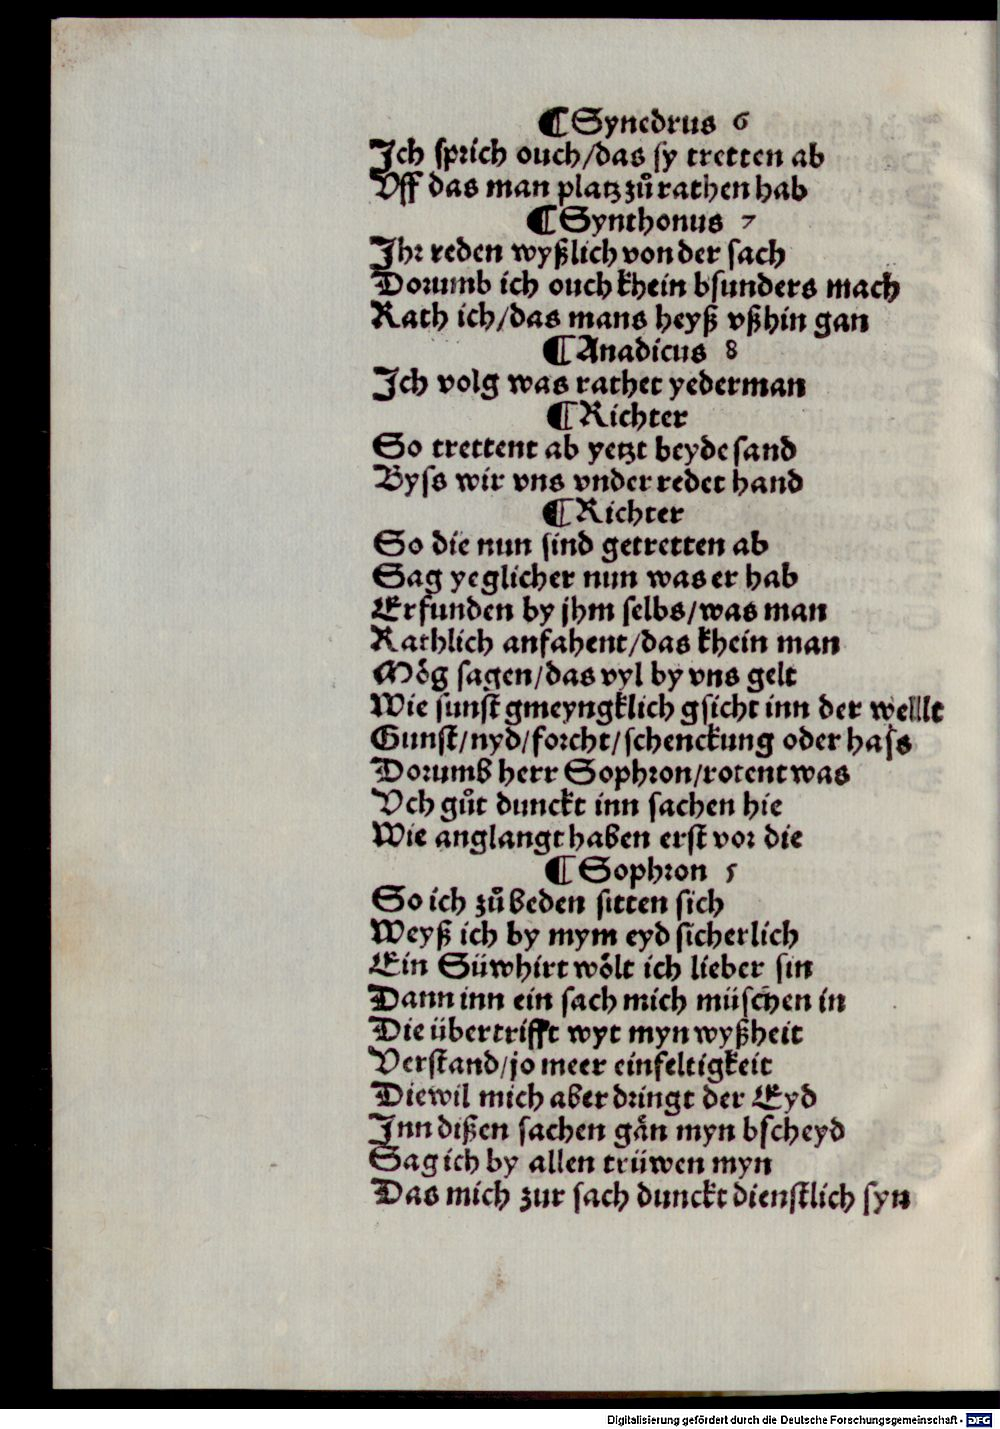 ¶ Synedrus 6
Ich sprich ouch/das sy tretten ab
Vff das man platz zů rathen hab
¶ Synthonus 7
Ihr reden wyßlich von der sach
Dorumb ich ouch khein bsunders mach
Rath ich/das mans heyß vßhin gan
¶ Anadicus 8
Ich volg was rathet yederman
¶ Richter
So trettent ab yetzt beyde sand
Byss wir vns vnder redet hand
¶ Richter
So die nun sind getretten ab
Sag yeglicher nun was er hab
Erfunden by jhm selbs/was man
Rathlich anfahent/das khein man
Mög sagen/das vyl by vns gelt
Wie sunst gmeyngklich gsicht inn der wellt
Gunst/nyd/forcht/schenckung oder hass
Dorumb herr Sophron/rotent was
Vch gůt dunckt inn sachen hie
Wie anglangt haben erst vor die
¶ Sophron 5
So ich zů beden sitten sich
Weyß ich by mym eyd sicherlich
Ein Süwhirt wölt ich lieber sin
Dann inn ein sach mich müschen in
Die übertrifft wyt myn wyßheit
Verstand/jo meer einfeltigkeit
Diewil mich aber dringt der Eyd
Inn dißen sachen gän myn bscheyd
Sag ich by allen trüwen myn
Das mich zur sach dunckt dienstlich syn
Digitalisierung gefördert durch die Deutsche Forschungsgemeinschaft - DFG